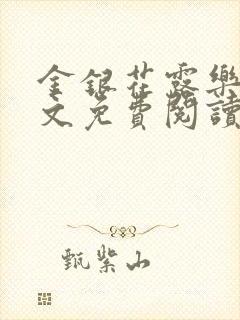 金銀花露樂
文免費閱讀
甄紫山